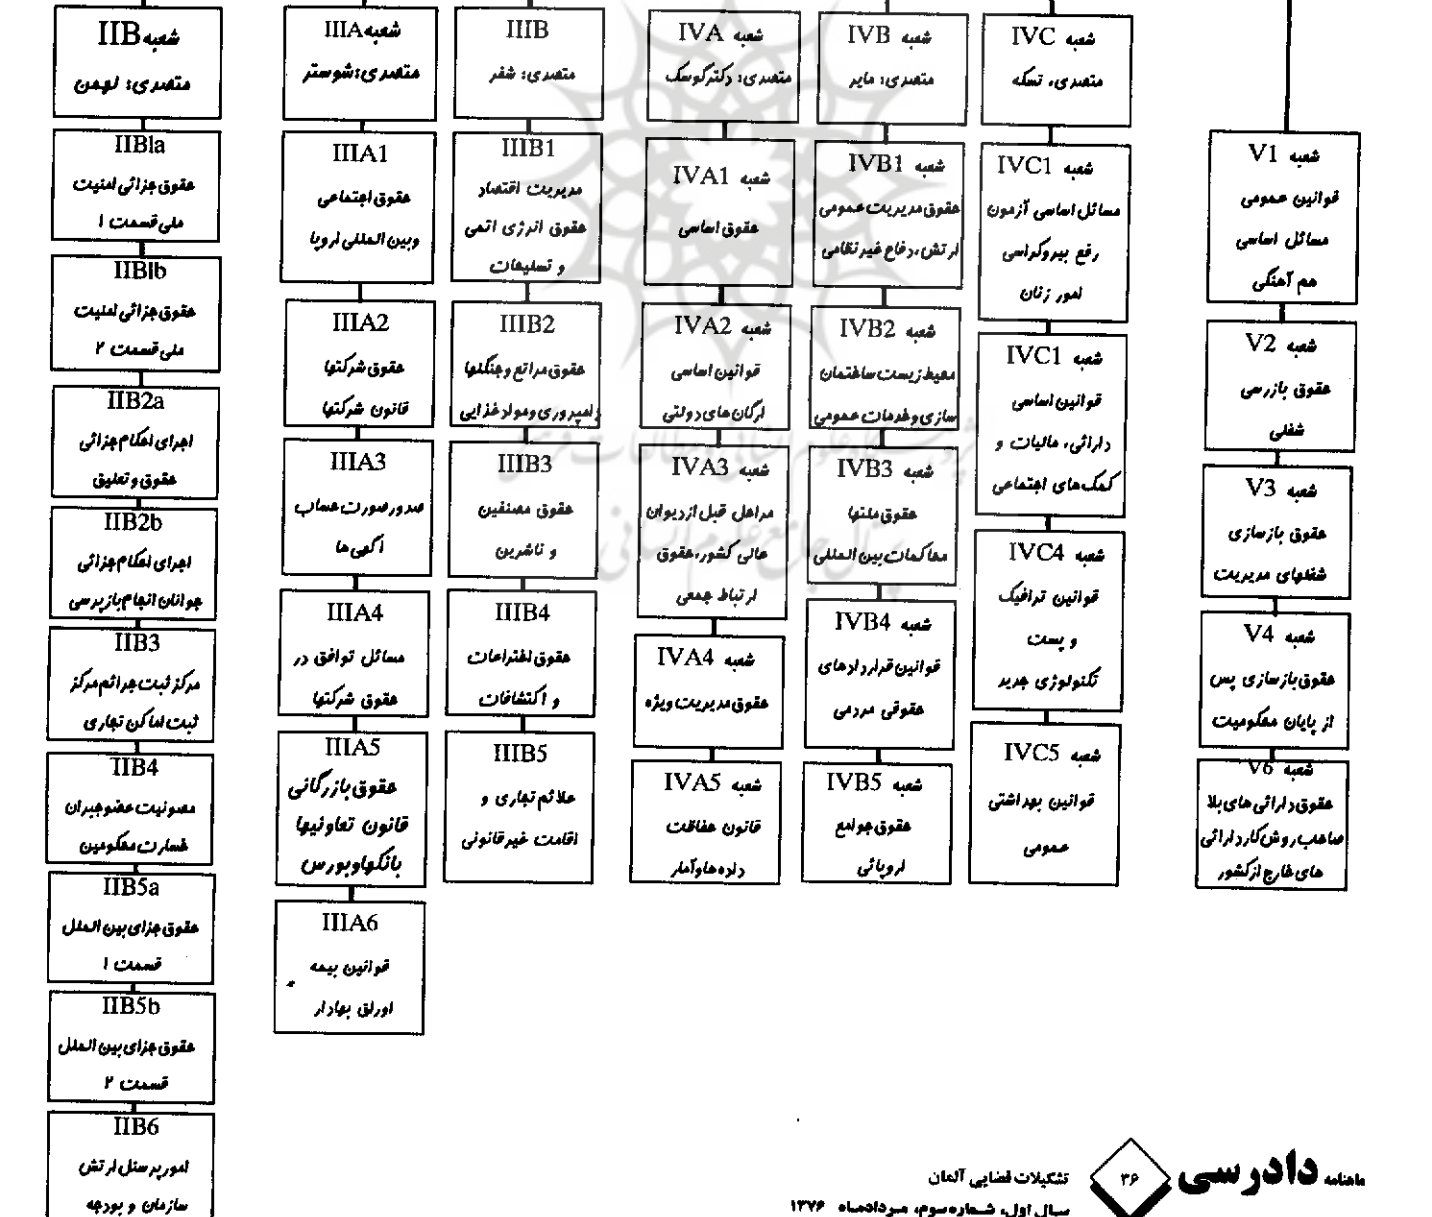 شعبه IIB
متصدی: لهمن
IIB1a
حقوق جزائی امنیت
ملی قسمت ۱
IIB1b
حقوق جزائی امنیت
ملی قسمت ۲
IIB2a
اجرای احکام جزائی
حقوق و تعلیق
IIB2b
اجرای احکام جزائی
جوانان انجام بازپرسی
IIB3
مرکز ثبت جرائم مرکز
ثبت اماکن تجاری
IIB4
مصونیت عضو جبران
خسارت محکومین
IIB5a
حقوق جزای بین الملل
قسمت ۱
IIB5b
حقوق جزای بین الملل
قسمت ۲
IIB6
امور پرسنل ارتش
سازمان و بودجه
شعبه IIIA
متصدی: شوستر
IIIA1
حقوق اجتماعی
و بین المللی اروپا
IIIA2
حقوق شرکتها
قانون شرکتها
IIIA3
صدور صورت حساب
آگهی ها
IIIA4
مسائل توافق در
حقوق شرکتها
IIIA5
حقوق بازرگانی
قانون تعاونیها
بانکها و بورس
IIIA6
قوانین بیمه
اوراق بهادار
IIIB
متصدی: شفر
IIIB1
مدیریت اقتصاد
حقوق انرژی اتمی
و تسلیحات
IIIB2
حقوق مراتع و جنگلها
دامپروری و مواد غذایی
IIIB3
حقوق مصنفین
و ناشرین
IIIB4
حقوق اختراعات
و اکتشافات
IIIB5
علائم تجاری و
اقامت غیر قانونی
شعبه IVA
متصدی: دکتر گوسک
شعبه IVA1
حقوق اساسی
شعبه IVA2
قوانین اساسی
ارگان های دولتی
شعبه IVA3
مراحل قبل از دیوان
عالی کشور، حقوق
ارتباط جمعی
شعبه IVA4
حقوق مدیریت ویژه
شعبه IVA5
قانون حفاظت
داده ها و آمار
شعبه IVB
متصدی: مایر
شعبه IVB1
حقوق مدیریت عمومی
ارتش، دفاع غیر نظامی
شعبه IVB2
محیط زیست ساختمان
سازی و خدمات عمومی
شعبه IVB3
حقوق ملتها
محاکمات بین المللی
شعبه IVB4
قوانین قراردادهای
حقوقی مردمی
شعبه IVB5
حقوق جوامع
اروپائی
شعبه IVC
متصدی، تسکه
شعبه IVC1
مسائل اساسی آزمون
رفع بیروکراسی
امور زنان
شعبه IVC1
قوانین اساسی
دارائی، مالیات و
کمک های اجتماعی
شعبه IVC4
قوانین ترافیک
و پست
تکنولوژی جدید
شعبه IVC5
قوانین بهداشتی
عمومی
شعبه V1
قوانین عمومی
مسائل اساسی
هم آهنگی
شعبه V2
حقوق بازرسی
شغلی
شعبه V3
حقوق بازسازی
شغلهای مدیریت
شعبه V4
حقوق بازسازی پس
از پایان محکومیت
شعبه V6
حقوق دارائی های بلا
صاحب روش کار دارائی
های خارج از کشور
پرتال جامع علوم انسانی
ماهنامه دادرسی
۳۶
تشکیلات قضایی آلمان
سال اول، شماره سوم، مردادماه ۱۳۷۶